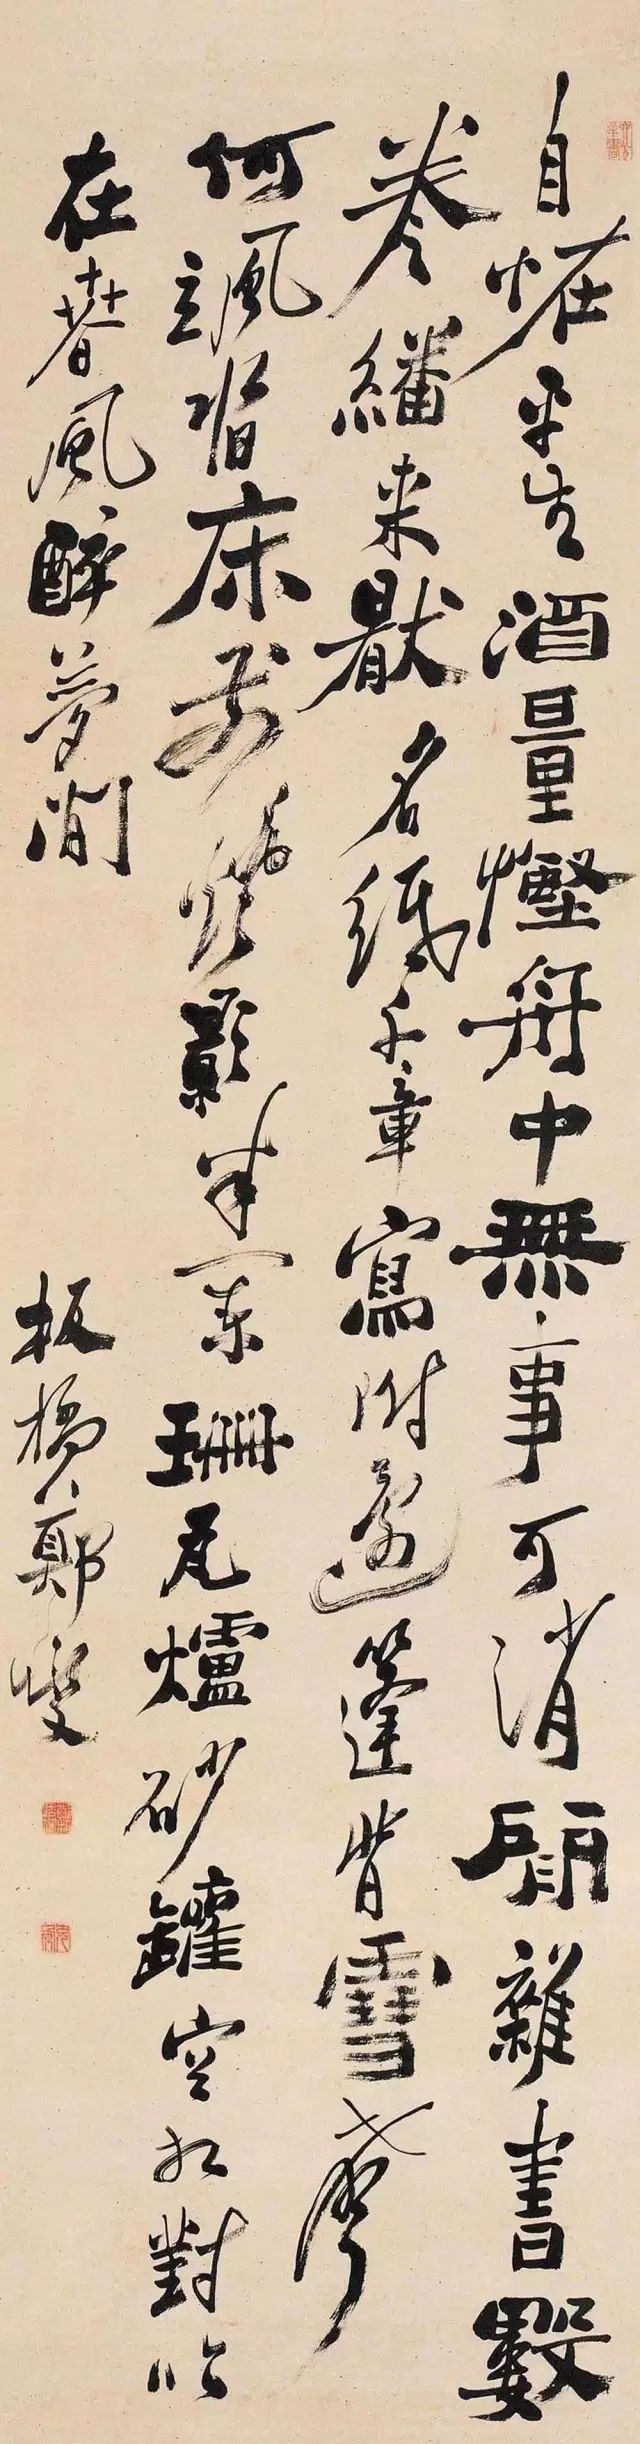 自恠平生酒量慳舟中無事可消閒雜書數
卷繙来厭名紙千章寫附還篷背雪聲
何颯沓床前燈影半闌珊瓦爐砂罐空相對昨
在春風醉夢間
板橋鄭燮